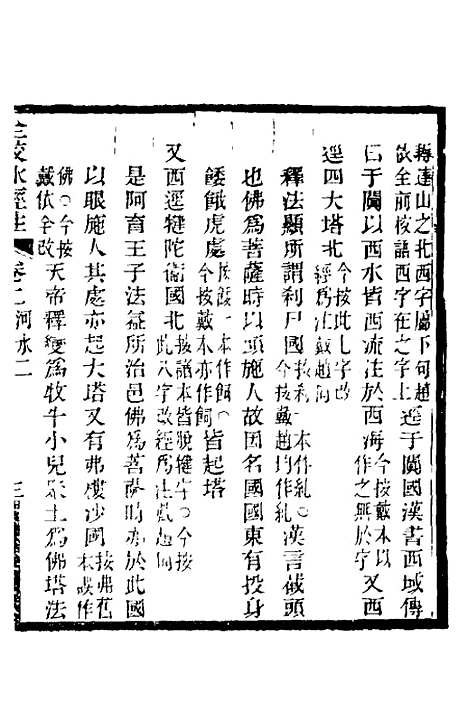 捐毒山之北西字屬下句趙
依全前校語西字在之字上逕于闐國漢書西域傳
曰于闐以西水皆西流注於西海今按戴本以作之無於字又西
逕四大塔北今按此七字改經爲注戴趙同
釋法顯所謂刹尸國今按戴趙均作糺本作糺○漢言截頭
也佛爲菩薩時以頭施人故因名國國東有投身
餧餓虎處按餧一本作飼○今按戴本亦作飼皆起塔
又西逕犍陀衞國北按諸本皆脫犍字○今按此八字改經爲注戴趙同
是阿育王子法益所治邑佛爲菩薩時亦於此國
以眼施人其處亦起大塔又有弗樓沙國按弗舊本誤作
佛○今按戴依全改天帝釋變爲牧牛小兒聚土爲佛塔法
全校水經注 卷二 河水二 三